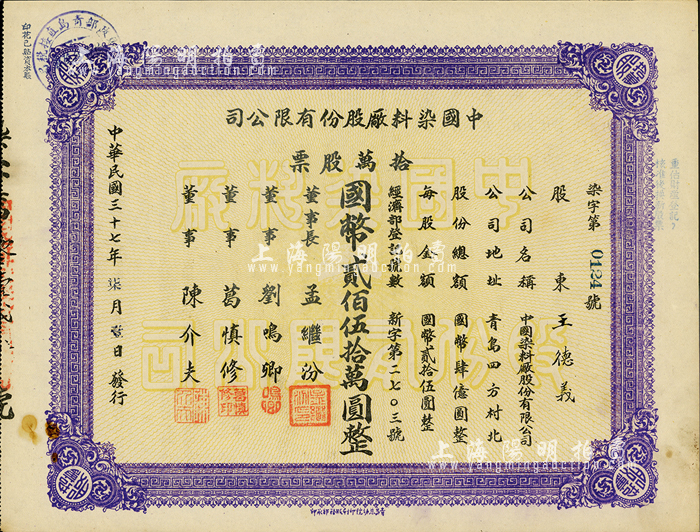 中國染料廠股份有限公司
拾萬股票
染字第0124號
股東 王德義
公司名稱 中國染料廠股份有限公司
公司地址 青島四方村北
股份總額 國幣肆億圓整
每股金額 國幣貳拾伍圓整
經濟部登記號數 新字第二七〇三號
國幣貳佰伍拾萬圓整
董事長 孟繼汾
董事 劉鳴卿
董事 葛慎修
董事 陳介夫
中華民國三十七年柒月壹日發行
上海陽明拍賣
www.yangmingauction.com